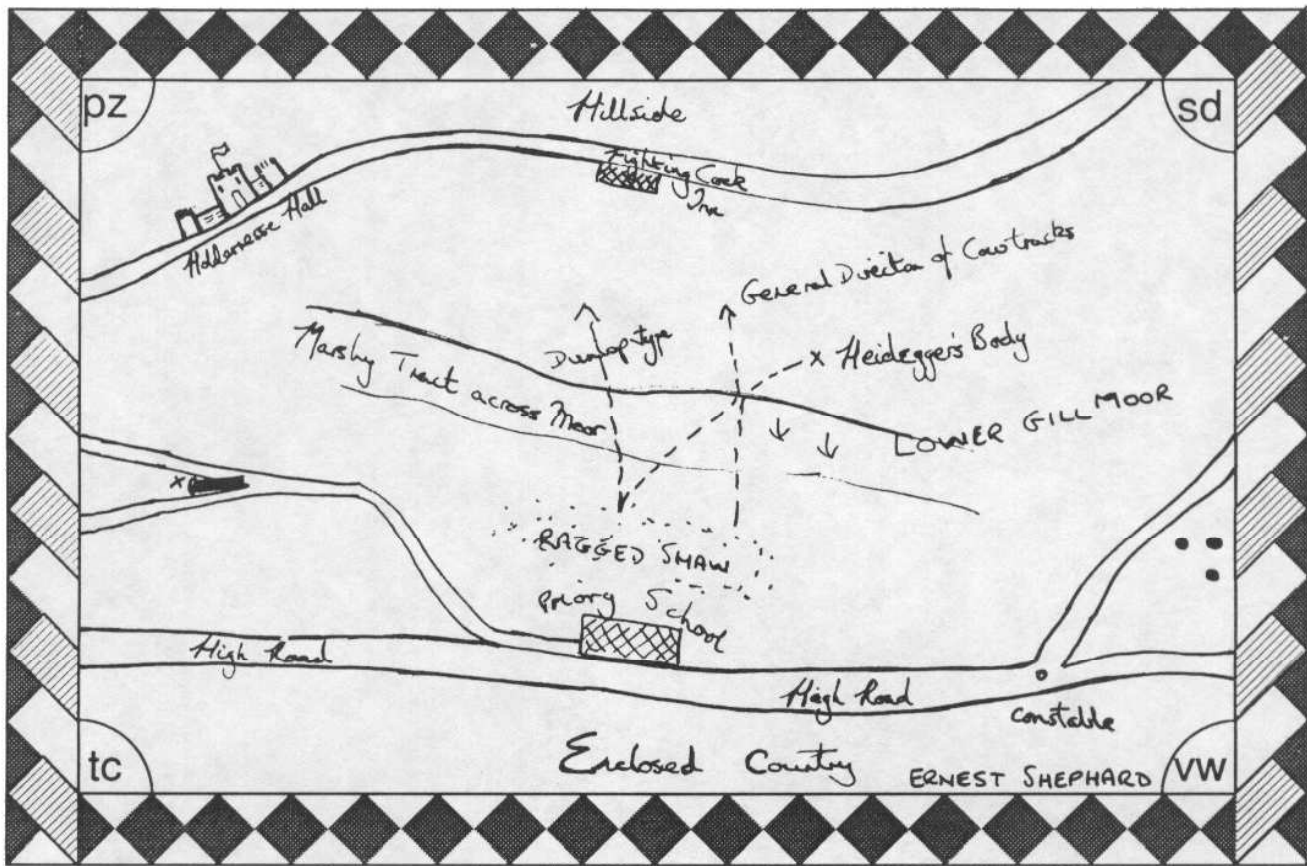 pz
sd
Hillside
Fighting Cock
Inn
Holdernesse Hall
General Direction of Cowtracks
Dunlop type
x Heidegger's Body
Marshy Tract across Moor
LOWER GILL MOOR
x
RAGGED SHAW
Priory School
High Road
High Road
Constable
Enclosed Country
ERNEST SHEPHARD
tc
vw